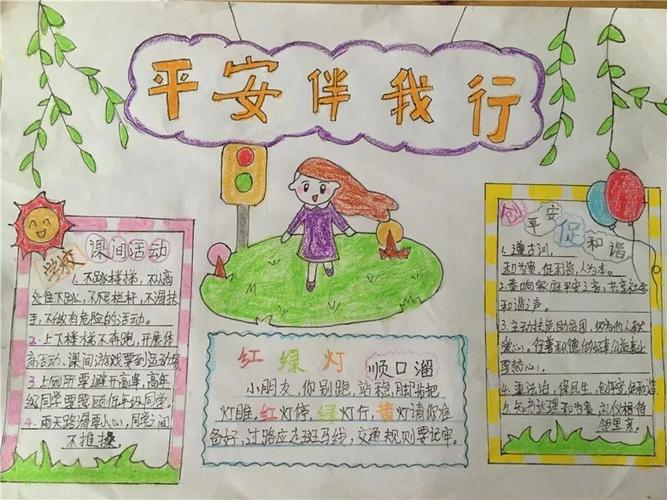 平安伴我行
学校
课间活动
1.不跳楼梯,不从高
处往下跳,不爬栏杆,不滑扶
手,不做有危险的活动。
2.上下楼梯不奔跑,开展体
育活动、课间游戏要到运动场
3.上厕所要避开高峰,高年
级同学要照顾低年级同学。
4.雨天路滑要小心,同学之间
不推搡
红绿灯
顺口溜
小朋友,你别跑,站稳脚步把
灯瞧,红灯停,绿灯行,黄灯请你准
备好,过路应走斑马线,交通规则要记牢。
创平安
促和谐
1.遵古训,
和为贵,
人为本。
2.奏响家庭平安之音,共享社会
和谐之声。
3.主动扶危助贫困,
爱心。
4.重法治,保民生,
邻里亲。